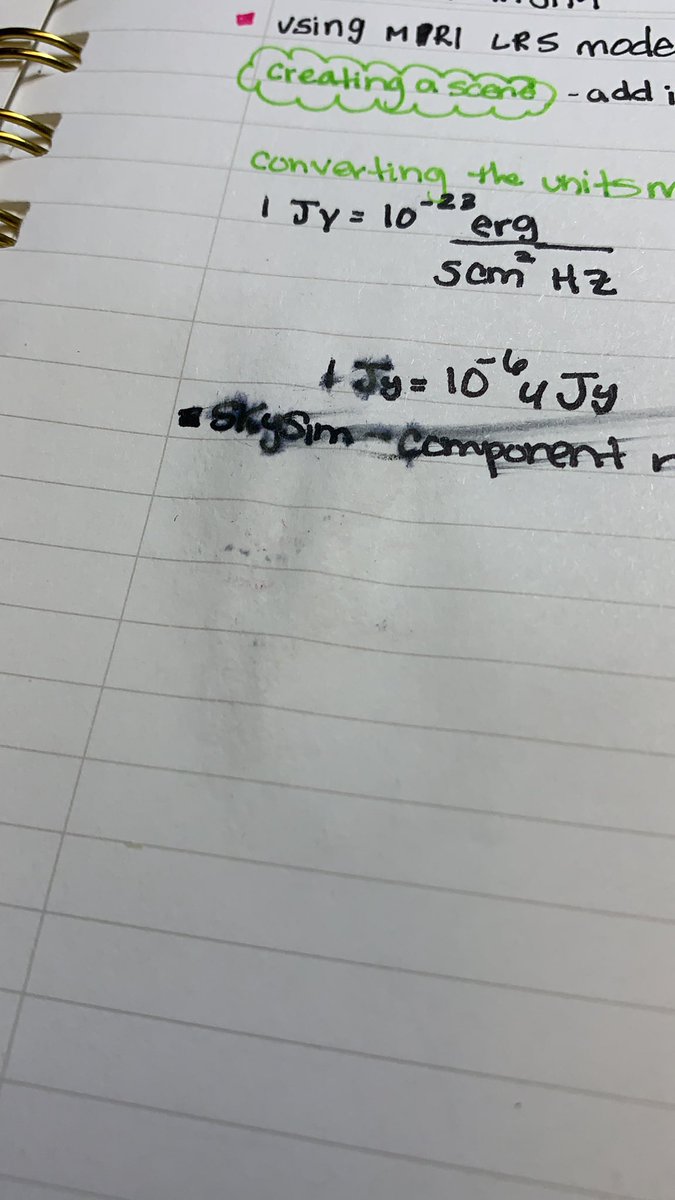 using MIRI LRS mode
creating a scene - add i
converting the units
1 Jy = 10⁻²³ erg
s cm² Hz
1 Jy = 10⁻⁶ μ Jy
SkySim - component